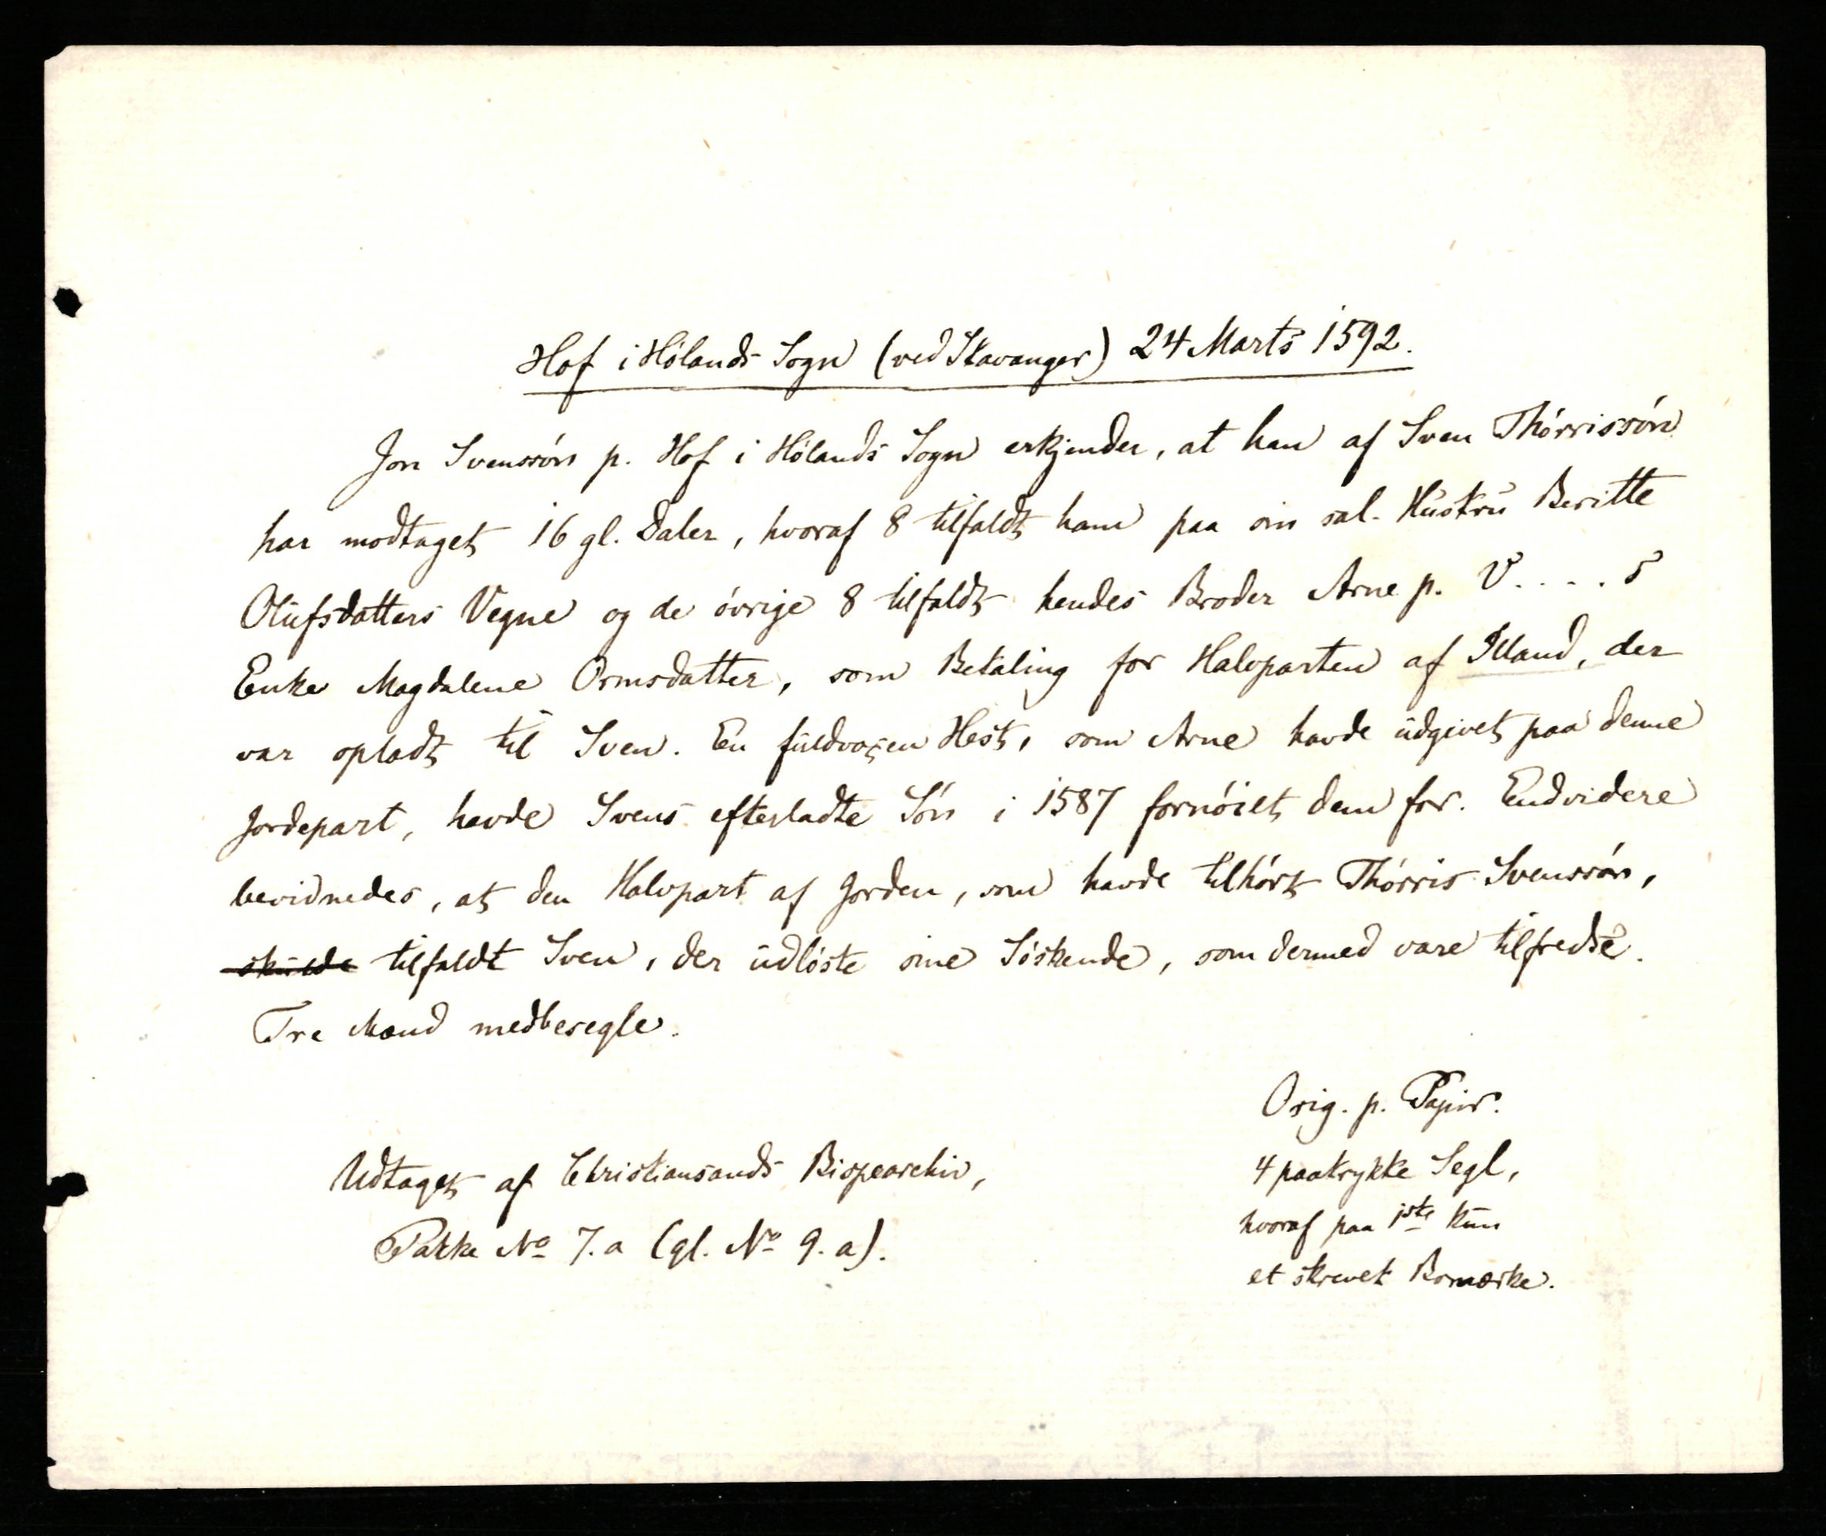 Hof i Hölands Sogn (ved Stavanger) 24 Marts 1592.
Jon Svenssön p. Hof i Hölands Sogn erkjender, at han af Sven Thörrissön
har modtaget 16 gl. Daler, hvoraf 8 tilfaldt ham paa sin sal. Hustru Beritte
Olufsdatters Vegne og de övrige 8 tilfaldt hendes Broder Arne p. V....s
Enke Magdalene Ormsdatter, som Betaling for Halvparten af Illand, der
var opladt til Sven. En fuldvoxen Hest, som Arne havde udgivet paa denne
Jordepart, havde Svens efterladte Sön i 1587 fornöiet dem for. Endvidere
bevidnedes, at den Halvpart af Jorden, som havde tilhört Thörris Svenssön,
skulde tilfaldt Sven, der udlöste sine Söskende, som dermed vare tilfredse.
Tre Mænd medbesegle.
Orig. p. Papir.
4 paatrykke Segl,
hvoraf paa 1ste kun
et skrevet Bomærke.
Udtaget af Christiansands Bispearchiv,
Pakke No 7.a (gl. No 9.a).